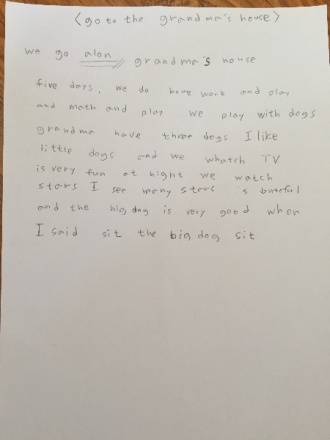 <go to the grandma's house>
we go alon grandma's house
five days. we do home work and play
and math and play we play with dogs
grandma have three dogs I like
little dogs and we whatch TV
is very fun at night we watch
stars I see many stars is buteful
and the big dog is very good when
I said sit the big dog sit